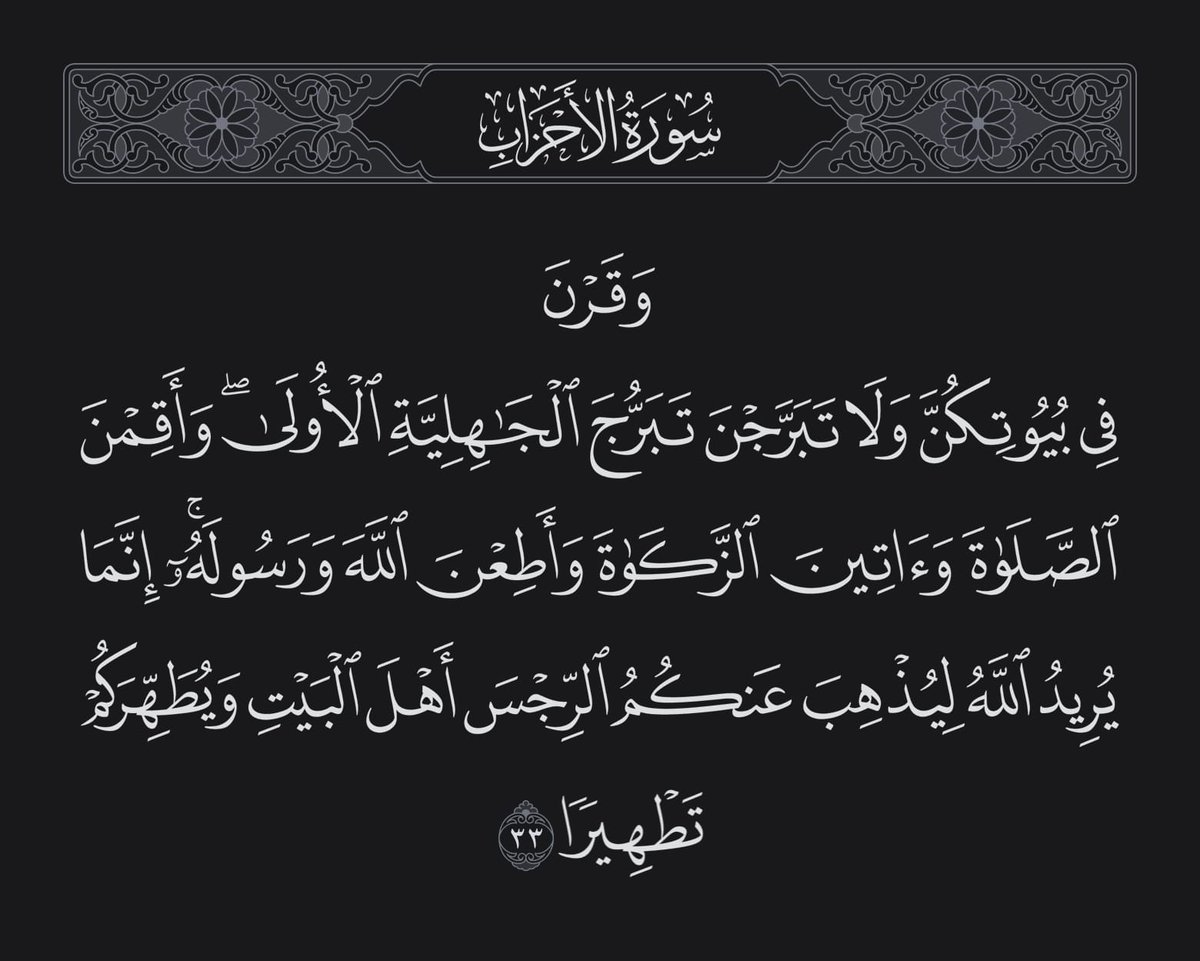 سُورَةُ الأَحْزَابِ
وَقَرْنَ
فِى بُيُوتِكُنَّ وَلَا تَبَرَّجْنَ تَبَرُّجَ ٱلْجَـٰهِلِيَّةِ ٱلْأُولَىٰ ۖ وَأَقِمْنَ
ٱلصَّلَوٰةَ وَءَاتِينَ ٱلزَّكَوٰةَ وَأَطِعْنَ ٱللَّهَ وَرَسُولَهُۥٓ ۚ إِنَّمَا
يُرِيدُ ٱللَّهُ لِيُذْهِبَ عَنكُمُ ٱلرِّجْسَ أَهْلَ ٱلْبَيْتِ وَيُطَهِّرَكُمْ
تَطْهِيرًا ٣٣